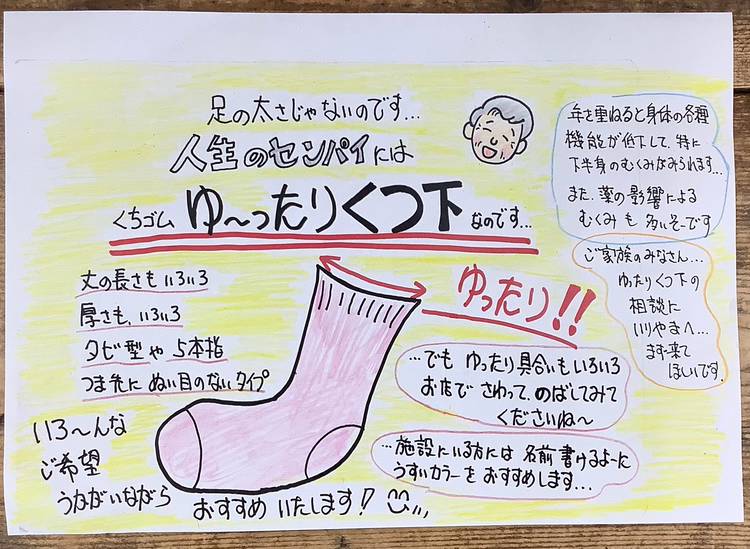 足の太さじゃないのです…
人生のセンパイには
くちゴム ゆ〜ったりくつ下 なのです…
年を重ねると身体の各種
機能が低下して、特に
下半身のむくみがみられます…
また、薬の影響による
むくみも多いそーです
ご家族のみなさん…
ゆったりくつ下の
相談に
いりやまへ…
まず来て
ほしいです。
丈の長さもいろいろ
厚さも、いろいろ
タビ型や5本指
つま先にぬい目のないタイプ
ゆったり!!
…でもゆったり具合いもいろいろ
お店でさわって、のばしてみて
くださいね〜
…施設にいる方には名前書けるよーに
うすいカラーをおすすめします…
いろ〜んな
ご希望
うかがいながら
おすすめいたします!